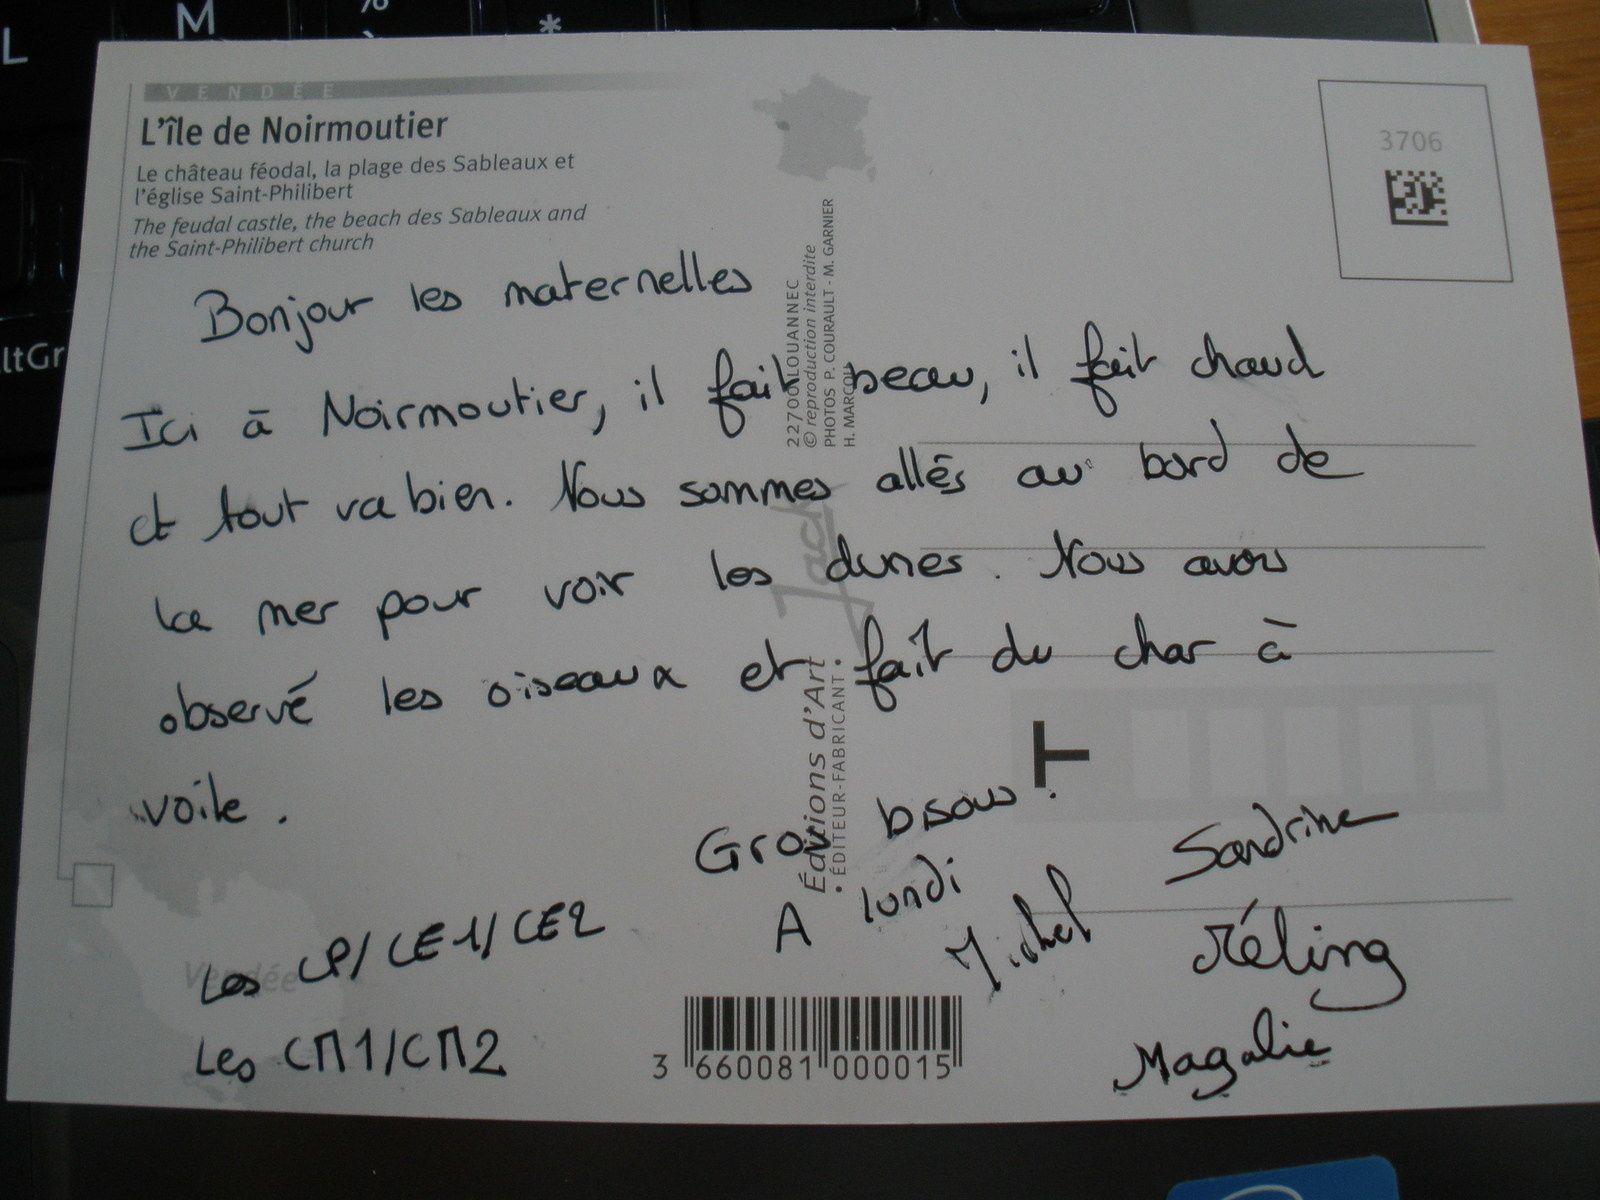 L
M
%
*
ltGr
VENDÉE
L'île de Noirmoutier
Le château féodal, la plage des Sableaux et
l'église Saint-Philibert
The feudal castle, the beach des Sableaux and
the Saint-Philibert church
3706
22700 LOUANNEC
© reproduction interdite
PHOTOS P. COURAULT - M. GARNIER
H. MARCOU
Jack
Éditions d'Art
• ÉDITEUR-FABRICANT •
Bonjour les maternelles
Ici à Noirmoutier, il fait beau, il fait chaud
et tout va bien. Nous sommes allés au bord de
la mer pour voir les dunes. Nous avons
observé les oiseaux et fait du char à
voile.
T
Gros bisous.
A lundi
Vendée
Les CP/CE1/CE2
Les CM1/CM2
Michel
Sandrine
Magalie
3 660081 000015